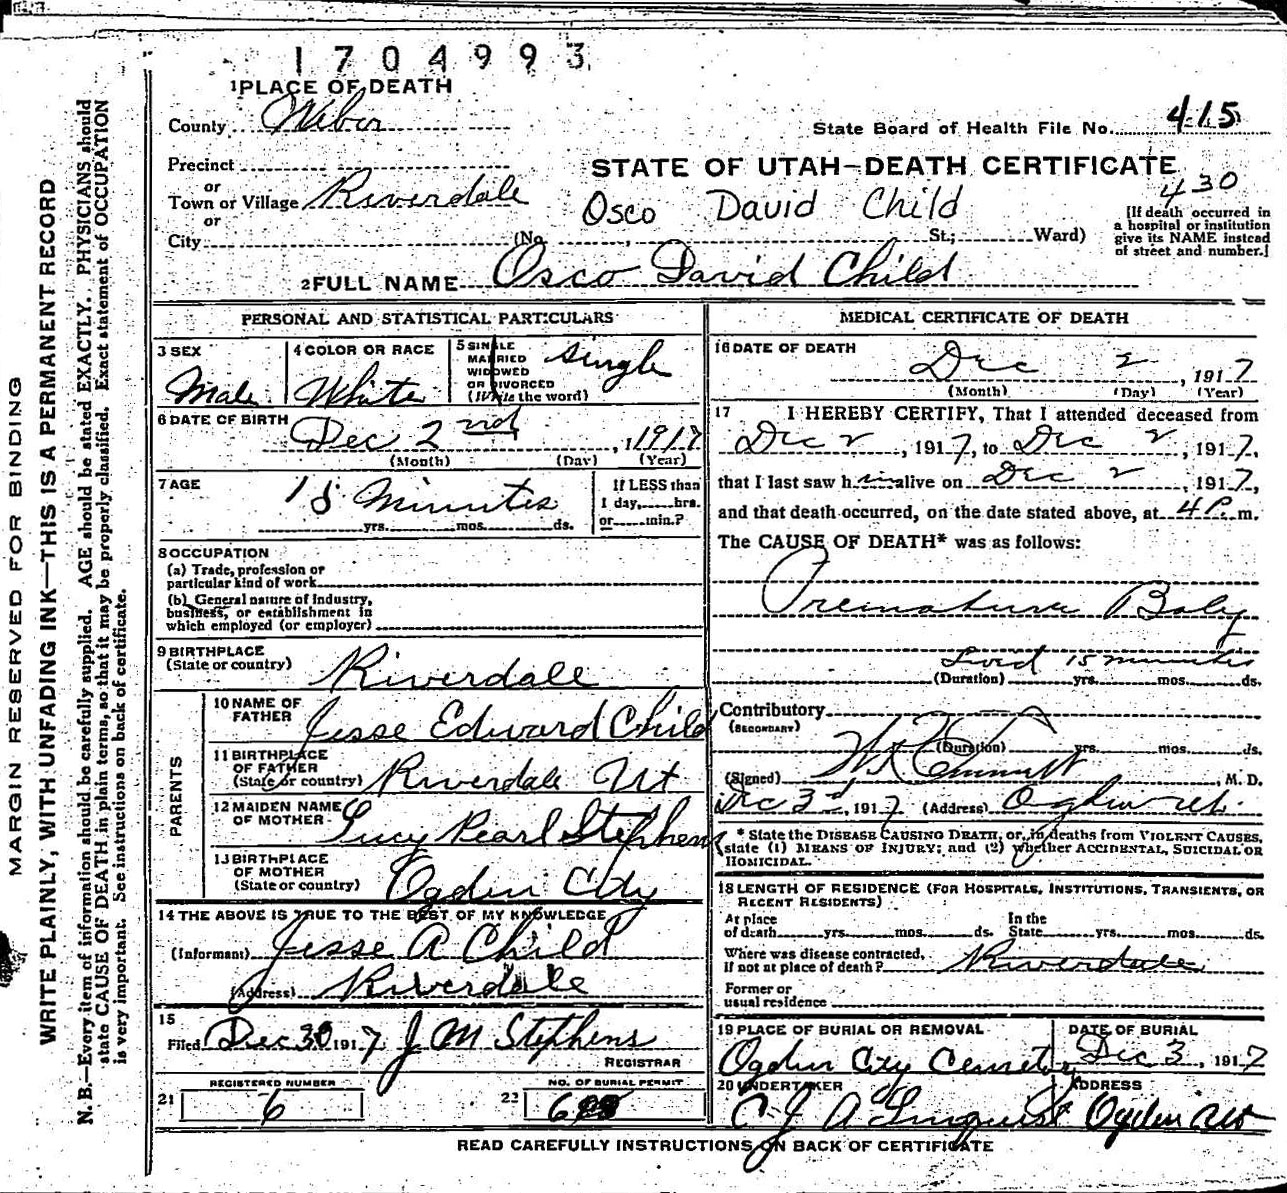 1704993
1 PLACE OF DEATH
County Weber
State Board of Health File No. 415
Precinct
STATE OF UTAH—DEATH CERTIFICATE
or
430
Town or Village Riverdale
Osco David Child
or
City (No. St.; Ward)
[If death occurred in
a hospital or institution
give its NAME instead
of street and number.]
2 FULL NAME Osco David Child
MARGIN RESERVED FOR BINDING
WRITE PLAINLY, WITH UNFADING INK—THIS IS A PERMANENT RECORD
N. B.—Every item of information should be carefully supplied. AGE should be stated EXACTLY. PHYSICIANS should
state CAUSE OF DEATH in plain terms, so that it may be properly classified. Exact statement of OCCUPATION
is very important. See instructions on back of certificate.
PERSONAL AND STATISTICAL PARTICULARS
3 SEX
Male
4 COLOR OR RACE
White
5 SINGLE
MARRIED
WIDOWED
OR DIVORCED
(Write the word)
Single
6 DATE OF BIRTH
Dec 2nd, 1917
(Month) (Day) (Year)
7 AGE
15 Minutes
yrs. mos. ds.
If LESS than
1 day, hrs.
or min.?
8 OCCUPATION
(a) Trade, profession or
particular kind of work
(b) General nature of industry,
business, or establishment in
which employed (or employer)
9 BIRTHPLACE
(State or country) Riverdale
PARENTS
10 NAME OF
FATHER Jesse Edward Child
11 BIRTHPLACE
OF FATHER
(State or country) Riverdale Ut
12 MAIDEN NAME
OF MOTHER Lucy Pearl Stephens
13 BIRTHPLACE
OF MOTHER
(State or country) Ogden City
14 THE ABOVE IS TRUE TO THE BEST OF MY KNOWLEDGE
(Informant) Jesse A Child
(Address) Riverdale
15
Filed Dec 30 1917 J M Stephens
REGISTRAR
REGISTERED NUMBER
21 6
NO. OF BURIAL PERMIT
22
MEDICAL CERTIFICATE OF DEATH
16 DATE OF DEATH
Dec 2, 1917
(Month) (Day) (Year)
17 I HEREBY CERTIFY, That I attended deceased from
Dec 2, 1917, to Dec 2, 1917,
that I last saw him alive on Dec 2, 1917,
and that death occurred, on the date stated above, at 4 P. m.
The CAUSE OF DEATH* was as follows:
Premature Baby
Lived 15 minutes
(Duration) yrs. mos. ds.
Contributory
(SECONDARY)
(Duration) yrs. mos. ds.
(Signed) M. D.
Dec 3d, 1917 (Address) Ogden Ut.
* State the DISEASE CAUSING DEATH, or, in deaths from VIOLENT CAUSES,
state (1) MEANS OF INJURY; and (2) whether ACCIDENTAL, SUICIDAL OR
HOMICIDAL.
18 LENGTH OF RESIDENCE (FOR HOSPITALS, INSTITUTIONS, TRANSIENTS, OR
RECENT RESIDENTS)
At place
of death yrs. mos. ds.
In the
State yrs. mos. ds.
Where was disease contracted,
if not at place of death? Riverdale
Former or
usual residence
19 PLACE OF BURIAL OR REMOVAL
Ogden City Cemetery
DATE OF BURIAL
Dec 3, 1917
20 UNDERTAKER
C J A Lindquist
ADDRESS
Ogden Ut
READ CAREFULLY INSTRUCTIONS ON BACK OF CERTIFICATE